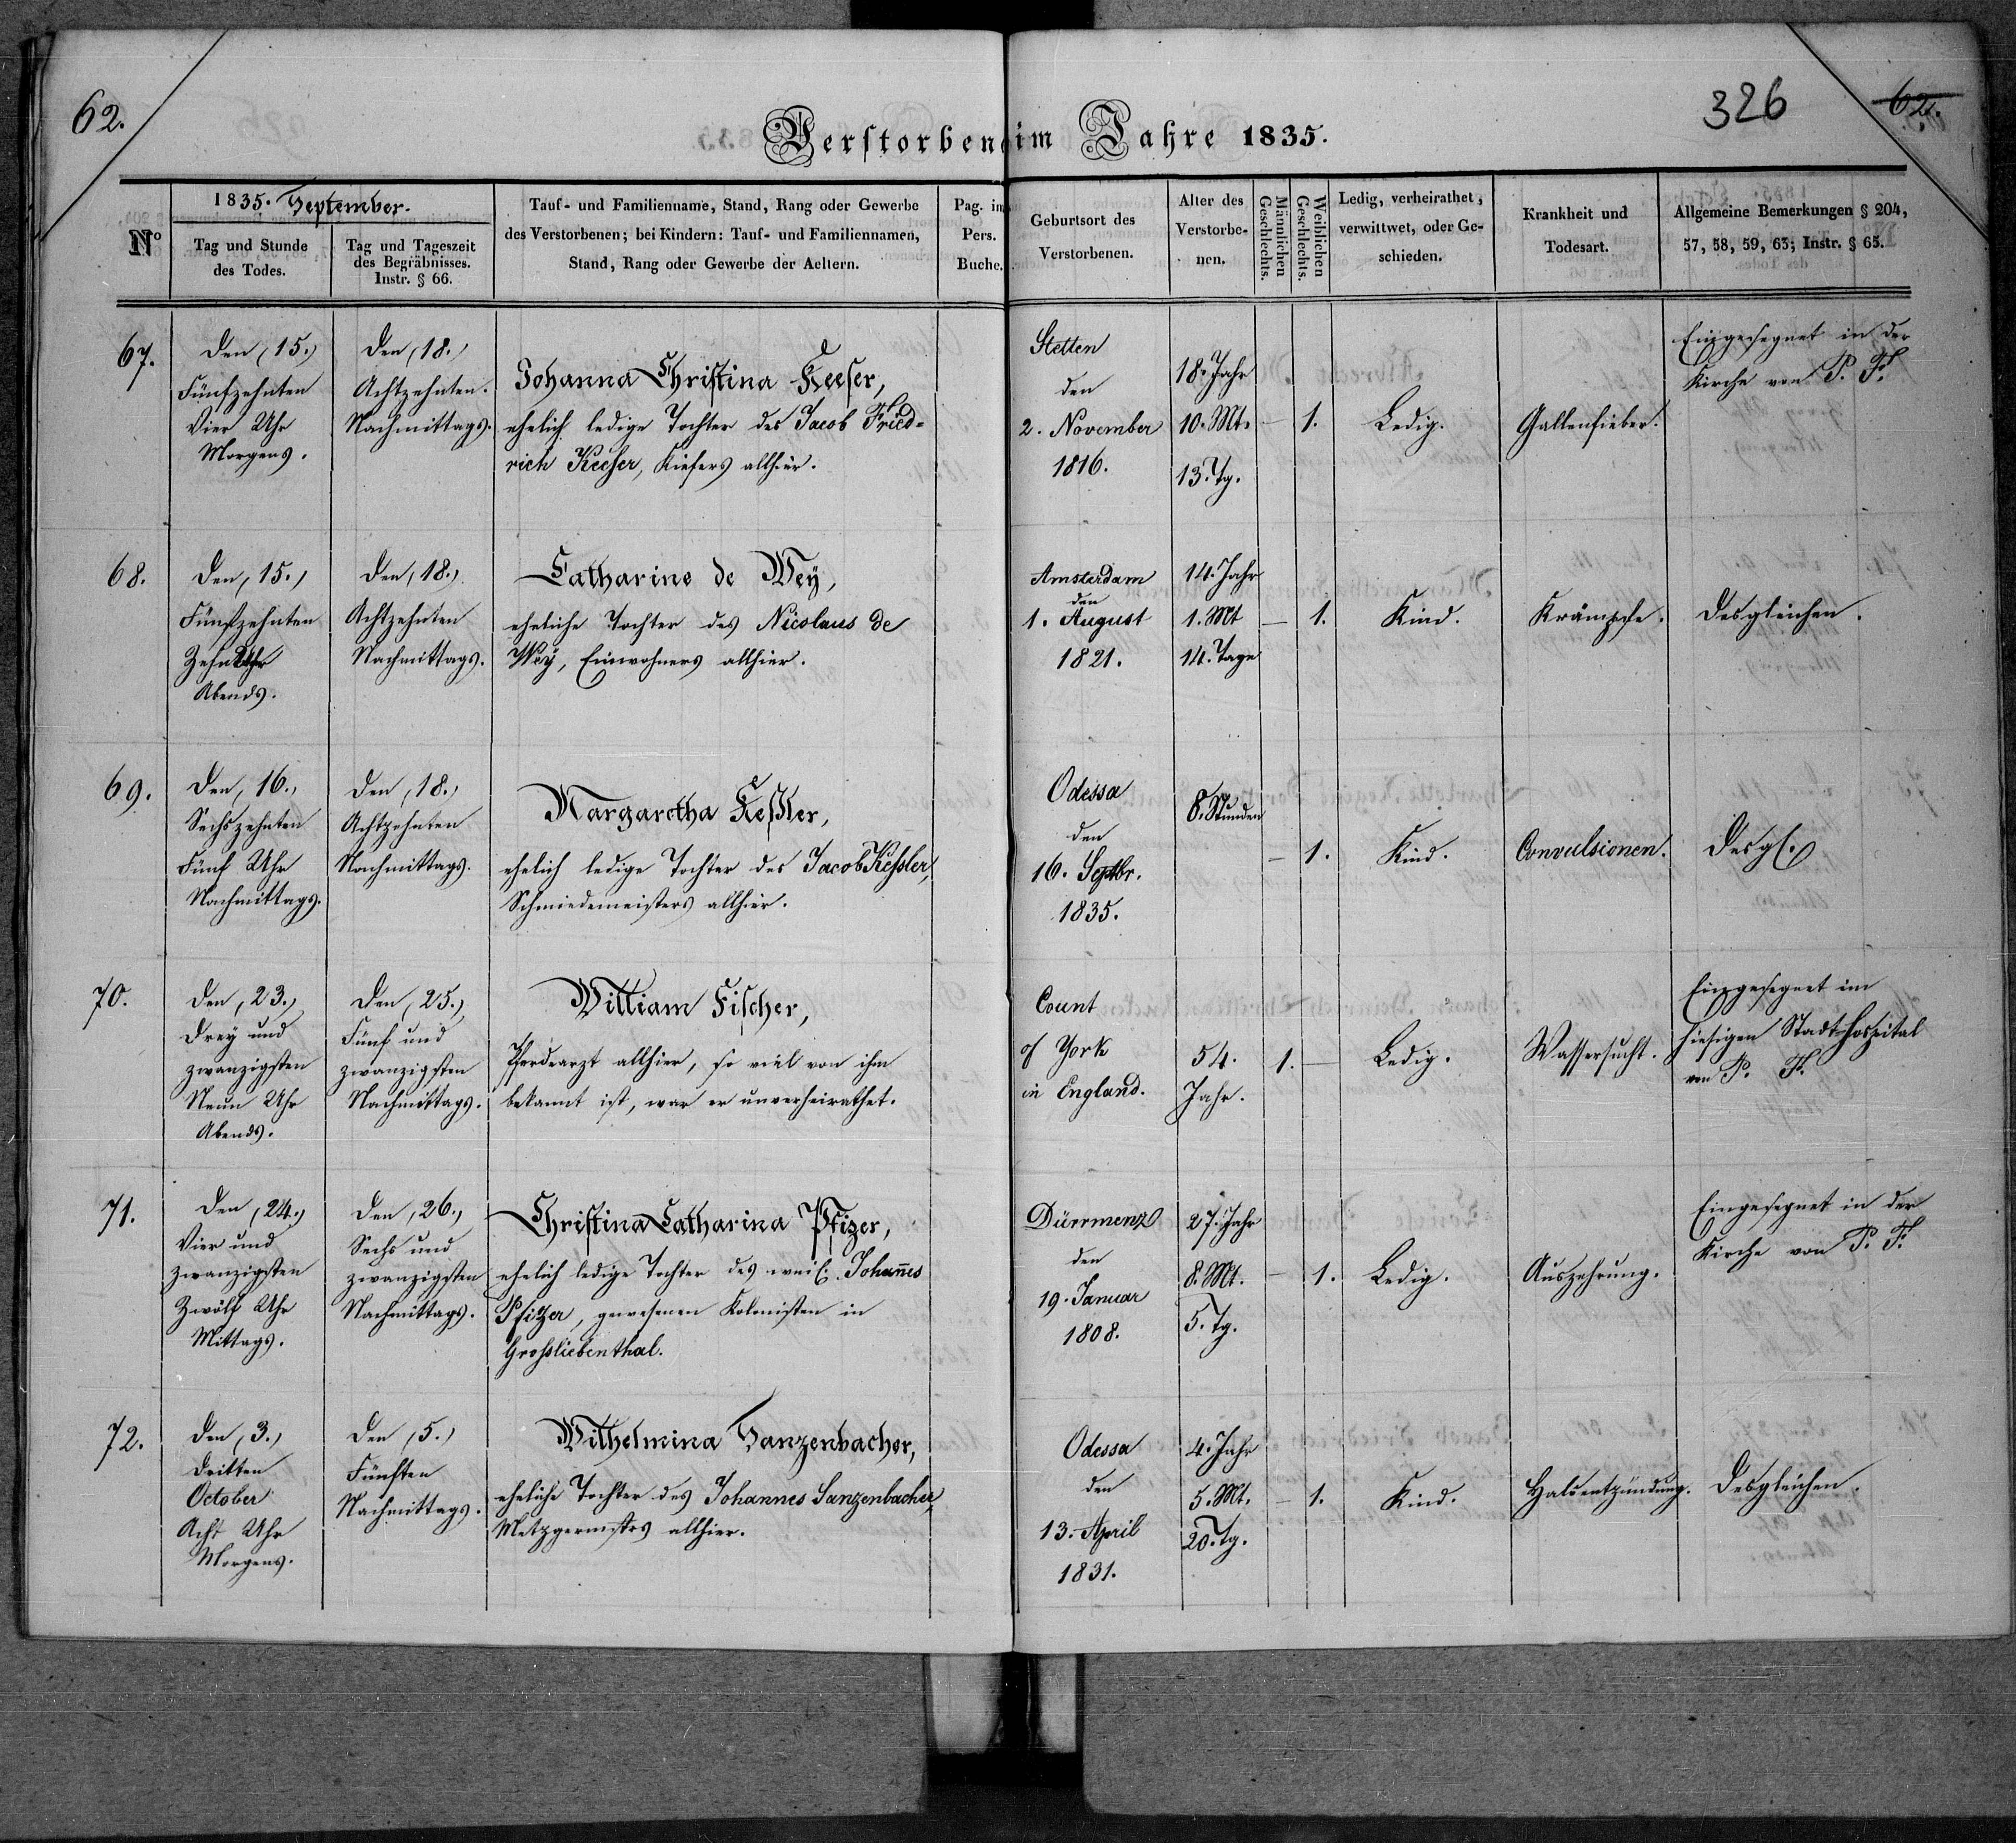 62.
326
62.
Verstorbene im Jahre 1835.
1835. September.
Nº
Tag und Stunde
des Todes.
Tag und Tageszeit
des Begräbnisses.
Instr. § 66.
Tauf- und Familienname, Stand, Rang oder Gewerbe
des Verstorbenen; bei Kindern: Tauf- und Familiennamen,
Stand, Rang oder Gewerbe der Aeltern.
Pag. im
Pers.
Buche.
Geburtsort des
Verstorbenen.
Alter des
Verstorbe-
nen.
Männlichen
Geschlechts.
Weiblichen
Geschlechts.
Ledig, verheirathet,
verwittwet, oder Ge-
schieden.
Krankheit und
Todesart.
Allgemeine Bemerkungen § 204,
57, 58, 59, 63; Instr. § 65.
67.
Den (15.)
Fünfzehnten
Vier Uhr
Morgens.
Den (18.)
Achtzehnten.
Nachmittags.
Johanna Christina Keeser,
ehelich ledige Tochter des Jacob Fried-
rich Keeser, Kiefers allhier.
Stetten
den
2. November
1816.
18. Jahr
10. Mt.
13. Tg.
— 1.
Ledig.
Gallenfieber.
Eingesegnet in der
Kirche von P. F.
68.
Den (15.)
Fünfzehnten
Zehn Uhr
Abends.
Den (18.)
Achtzehnten
Nachmittags.
Catharine de Weÿ,
eheliche Tochter des Nicolaus de
Weÿ, Einwohners allhier.
Amsterdam
den
1. August
1821.
14. Jahr
1. Mt
14. Tage
— 1.
Kind.
Krämpfe.
Desgleichen.
69.
Den (16.)
Sechszehnten
Fünf Uhr
Nachmittags.
Den (18.)
Achtzehnten
Nachmittags.
Margaretha Keßler,
ehelich ledige Tochter des Jacob Keßler,
Schmiedemeisters allhier.
Odessa
den
16. Septbr.
1835.
8. Stunden
— 1.
Kind.
Convulsionen.
Desgl.
70.
Den (23.)
Drey und
zwanzigsten
Neun Uhr
Abends.
Den (25.)
Fünf und
zwanzigsten
Nachmittags.
William Fischer,
Pferdearzt allhier, so viel von ihm
bekannt ist, war er unverheirathet.
Count
of York
in England.
54.
Jahr.
1. —
Ledig.
Wassersucht.
Eingesegnet im
hiesigen Stadthospital
von P. F.
71.
Den (24.)
Vier und
zwanzigsten
Zwölf Uhr
Mittags.
Den (26.)
Sechs und
zwanzigsten
Nachmittags.
Christina Catharina Pfizer,
ehelich ledige Tochter des weil. Johan̄es
Pfizer, gewesenen Kolonisten in
Großliebenthal.
Dürrmenz
den
19. Januar
1808.
27. Jahr
8. Mt.
5. Tg.
— 1.
Ledig.
Auszehrung.
Eingesegnet in der
Kirche von P. F.
72.
Den (3.)
Dritten
October
Acht Uhr
Morgens.
Den (5.)
Fünften
Nachmittags.
Wilhelmina Sanzenbacher,
eheliche Tochter des Johannes Sanzenbacher,
Metzgermstrs allhier.
Odessa
den
13. April
1831.
4. Jahr
5. Mt.
20. Tg.
— 1.
Kind.
Halsentzündung.
Desgleichen.